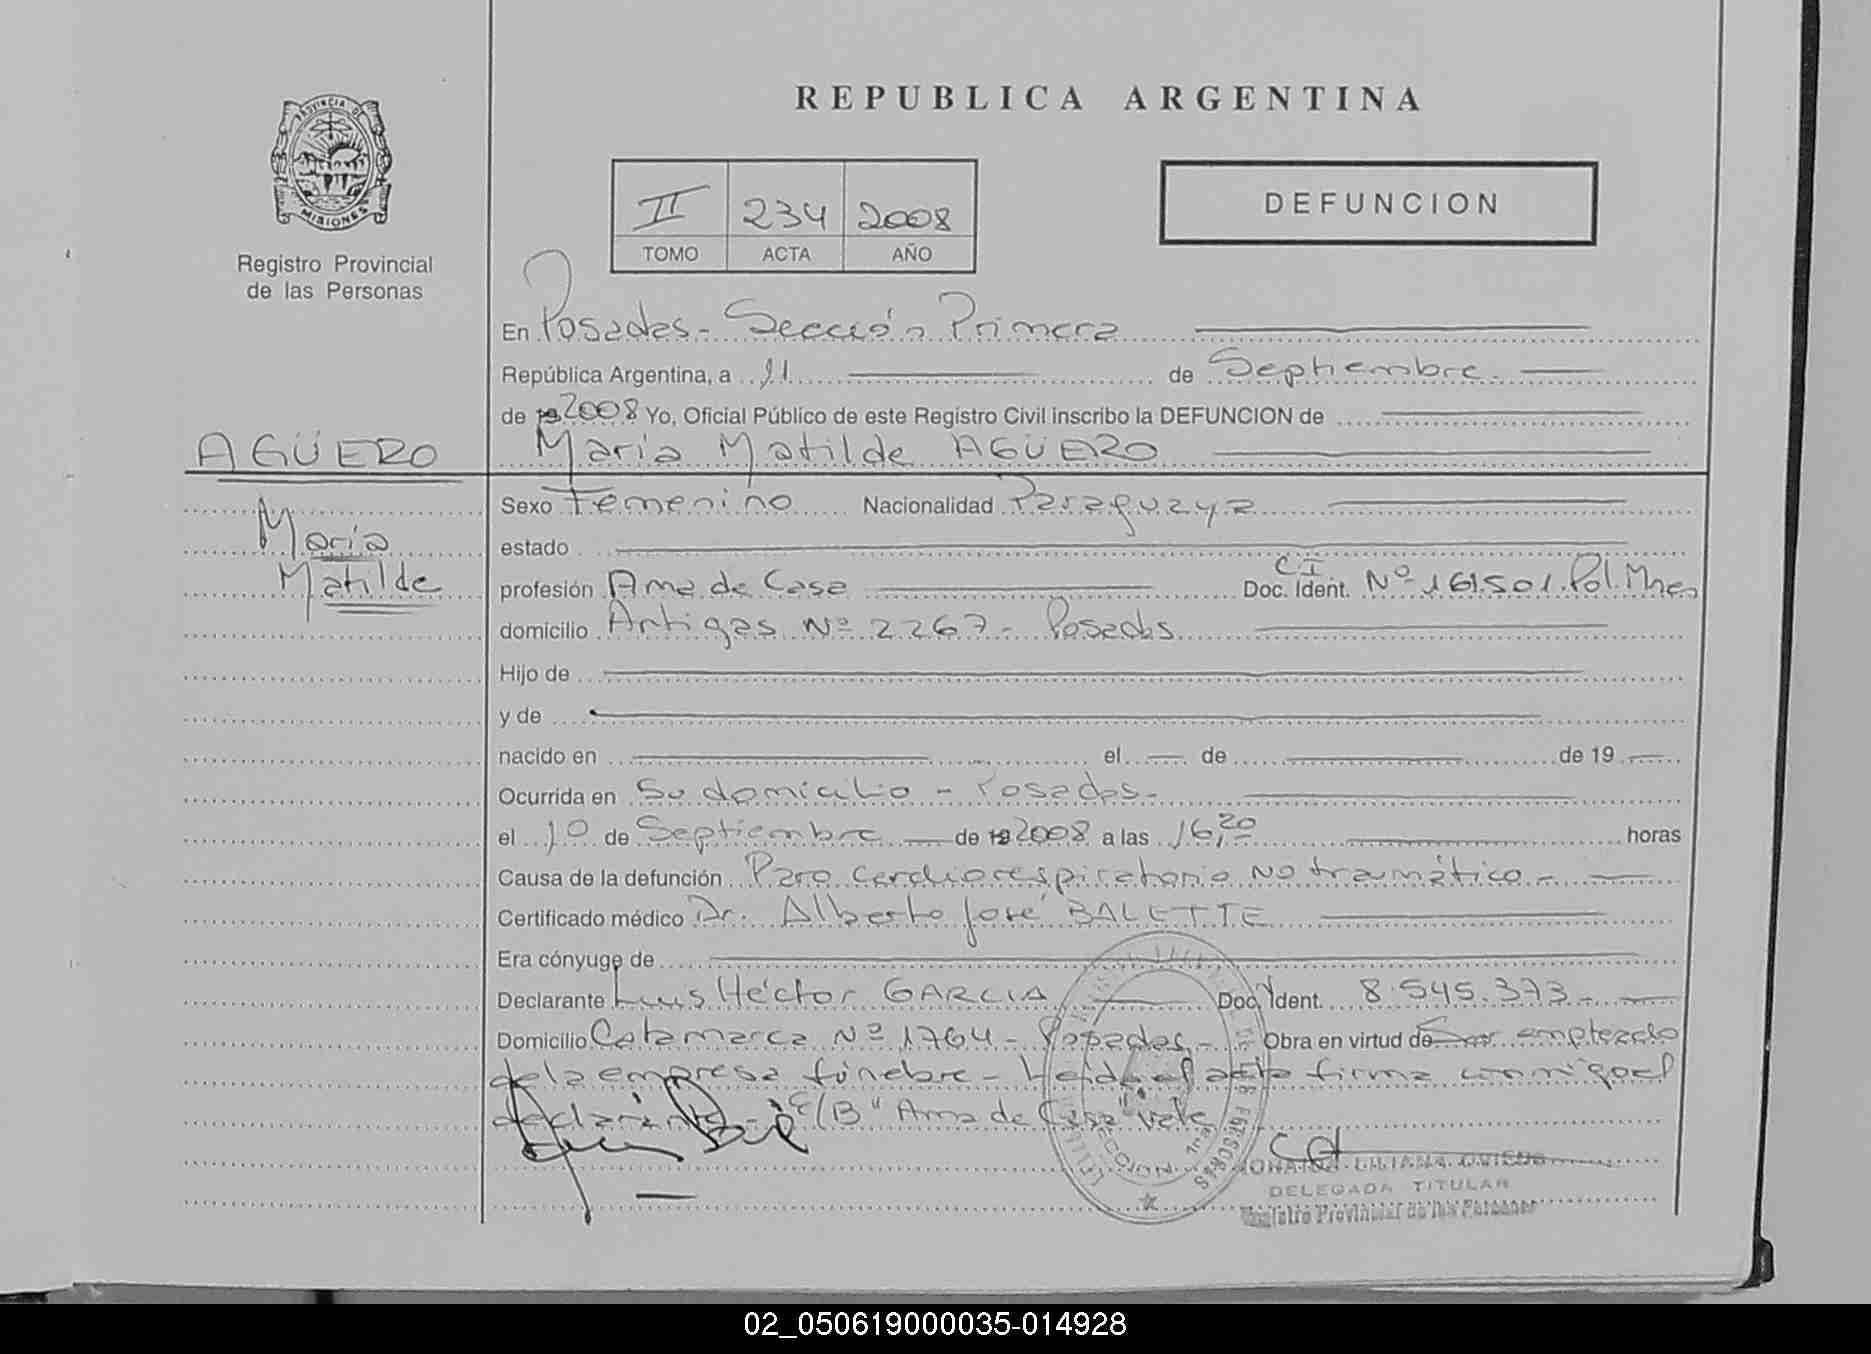 PROVINCIA DE
MISIONES
Registro Provincial
de las Personas
REPUBLICA ARGENTINA
II 234 2008
TOMO ACTA AÑO
DEFUNCION
En Posadas - Sección Primera
República Argentina, a 11 de Septiembre
de 19 2008 Yo, Oficial Público de este Registro Civil inscribo la DEFUNCION de
AGÜERO María Matilde AGÜERO
María
Matilde
Sexo Femenino Nacionalidad Paraguaya
estado
profesión Ama de Casa Doc. Ident. CI Nº 161.501 Pol. Mnes
domicilio Artigas Nº 2267 - Posadas
Hijo de
y de
nacido en el de de 19
Ocurrida en Su domicilio - Posadas -
el 10 de Septiembre de 19 2008 a las 16,20 horas
Causa de la defunción Paro cardiorespiratorio no traumático -
Certificado médico Dr. Alberto José BALETTE
Era cónyuge de
Declarante Luis Héctor GARCIA Doc. Ident. 8.545.373 -
Domicilio Catamarca Nº 1764 - Posadas - Obra en virtud de Ser empleado
de la empresa fúnebre - Leída el acta firma conmigo el
declarante - E/B "Ama de Casa" vale
LILIANA OVIEDO
DELEGADA TITULAR
Registro Provincial de las Personas
02_050619000035-014928